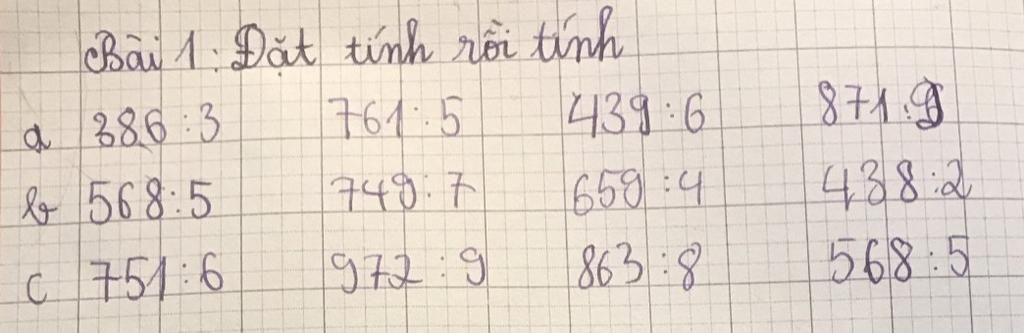 Bài 1: Đặt tính rồi tính
a 386 : 3 761 : 5 439 : 6 871 : 9
b 568 : 5 749 : 7 659 : 4 438 : 2
c 751 : 6 972 : 9 863 : 8 568 : 5